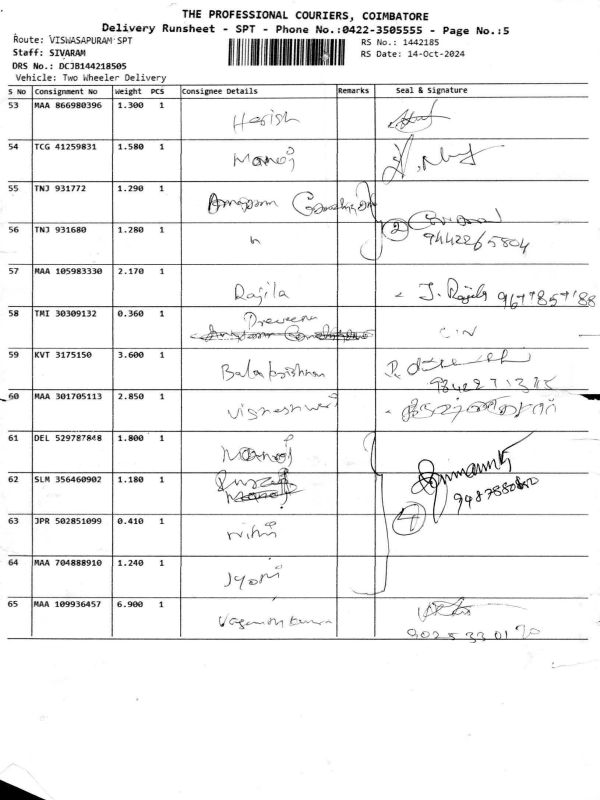 THE PROFESSIONAL COURIERS, COIMBATORE
Delivery Runsheet - SPT - Phone No.:0422-3505555 - Page No.:5
Route: VISWASAPURAM SPT RS No.: 1442185
Staff: SIVARAM RS Date: 14-Oct-2024
DRS No.: DCJB144218505
Vehicle: Two Wheeler Delivery
S No Consignment No Weight PCS Consignee Details Remarks Seal & Signature
53 MAA 866980396 1.300 1 Harish
54 TCG 41259831 1.580 1 Manoj
55 TNJ 931772 1.290 1
56 TNJ 931680 1.280 1 2 9442265804
57 MAA 105983330 2.170 1 Rajila J. Rajila
58 TMI 30309132 0.360 1 Praveena
59 KVT 3175150 3.600 1 Balakrishnan
60 MAA 301705113 2.850 1 Vigneshwari
61 DEL 529787848 1.800 1 Manoj
62 SLM 356460902 1.180 1
63 JPR 502851099 0.410 1 Nithi 4
64 MAA 704888910 1.240 1 Jyothi
65 MAA 109936457 6.900 1